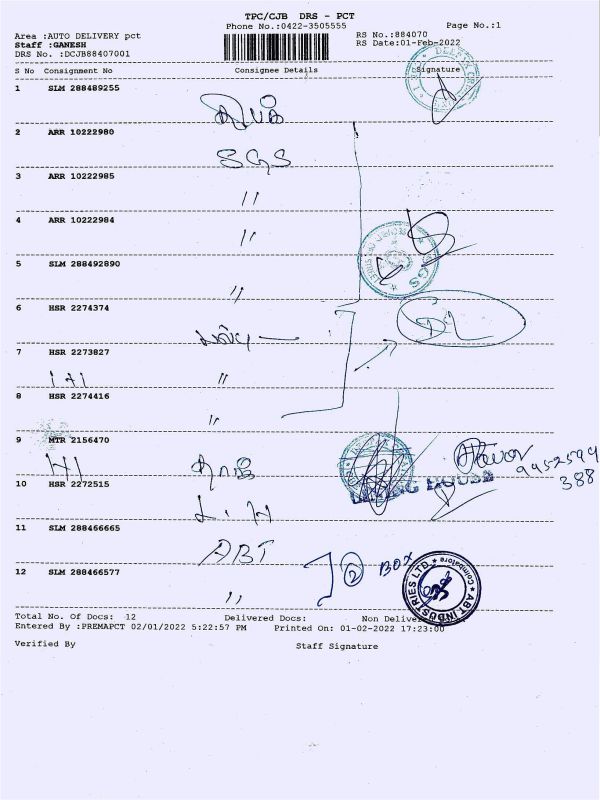 TPC/CJB DRS - PCT
Phone No.:0422-3505555
Page No.:1
Area :AUTO DELIVERY pct
RS No.:884070
Staff :GANESH
RS Date:01-Feb-2022
DRS No. :DCJB88407001
S No Consignment No Consignee Details Signature
1 SLM 288489255
2 ARR 10222980
SGS
3 ARR 10222985
"
4 ARR 10222984
"
5 SLM 288492890
"
6 HSR 2274374
7 HSR 2273827
"
8 HSR 2274416
"
9 MTR 2156470
9952594
388
HOUSE
10 HSR 2272515
11 SLM 288466665
ABT
2 BOX
12 SLM 288466577
"
ABT INDUSTRIES LTD. Coimbatore
Total No. Of Docs: 12 Delivered Docs: Non Deliver
Entered By :PREMAPCT 02/01/2022 5:22:57 PM Printed On: 01-02-2022 17:23:00
Verified By Staff Signature